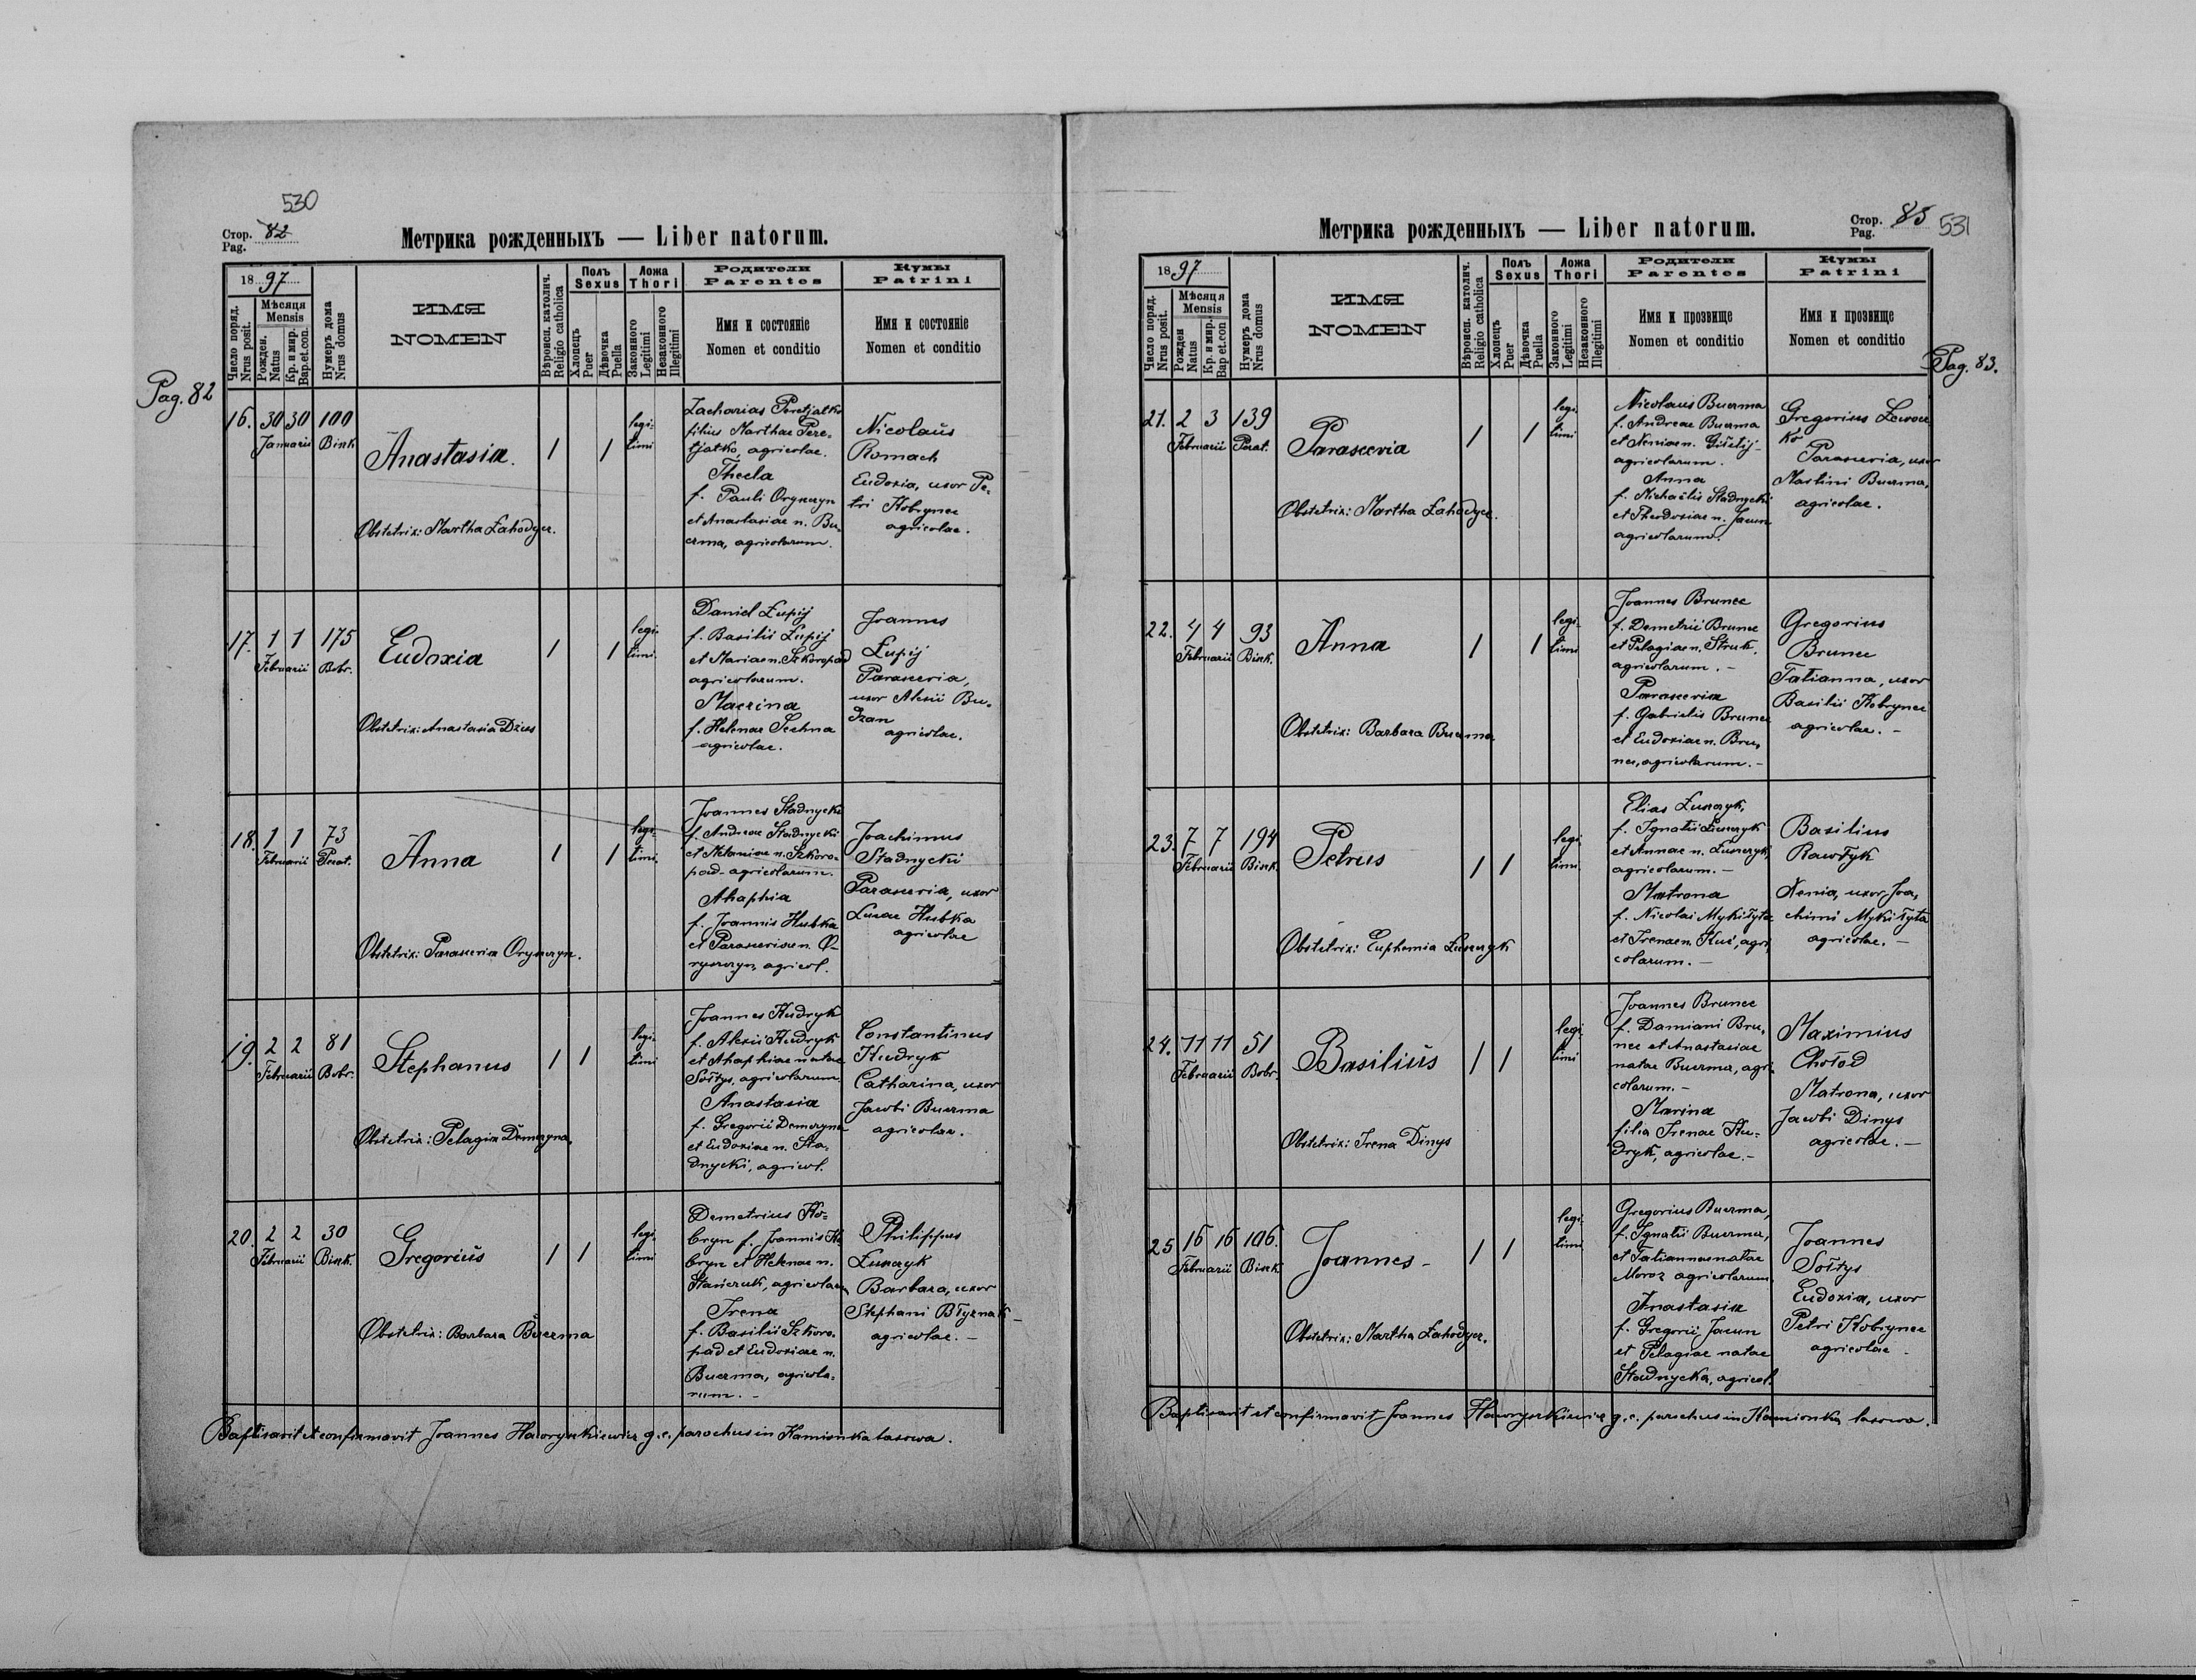 530
Стор. 82
Pag.
Метрика рожденныхъ — Liber natorum.
Pag. 82
18 97
Число поряд. Nrus posit.
Мѣсяця Mensis
Рожден. Natus
Кр. и мир. Bap.et.con.
Нумеръ дома Nrus domus
ИМЯ
NOMEN
Вѣроисп. католич. Religio catholica
Полъ Sexus
Хлопецъ Puer
Дѣвочка Puella
Ложа Thori
Законного Legitimi
Незаконного Illegitimi
Родители
Parentes
Имя и состояніе
Nomen et conditio
Кумы
Patrini
Имя и состояніе
Nomen et conditio
16. 30 30 100
Januarii Bink
Anastasia.
1 1
legi-
timi
Zacharias Peretjatko
filius Marthae Pere-
tjatko, agricolae.
Thecla
f. Pauli Oryszczyn
et Anastasiae n. Bu-
czma, agricolarum.
Nicolaus
Romach
Eudoxia, uxor Pe-
tri Kobrynec
agricolae.
Obstetrix: Martha Zahodycz.
17. 1 1 175
Februarii Bobr.
Eudoxia
1 1
legi-
timi.
Daniel Łupij
f. Basilii Łupij
et Mariae n. Szkoropad
agricolarum.
Macrina
f. Helenae Sechna
agricolae.
Joannes
Łupij
Parascevia,
uxor Alexii Bu-
dzan
agricolae.
Obstetrix: Anastasia Dzius
18. 1 1 73
Februarii Perat.
Anna
1 1
legi-
timi.
Joannes Stadnycki
f. Andreae Stadnycki
et Melaniae n. Szkoro-
pad - agricolarum.
Ahaphia
f. Joannis Hubka
et Parasceviae n. O-
ryszczyn, agricol.
Joachimus
Stadnycki
Parascevia, uxor
Lucae Hubka
agricolae
Obstetrix: Parascevia Oryszczyn.
19. 2 2 81
Februarii Bobr.
Stephanus
1 1
legi-
timi
Joannes Kudryk
f. Alexii Kudryk
et Ahaphiae natae
Sołtys, agricolarum
Anastasia
f. Gregorii Demczyna
et Eudoxiae n. Sta-
dnycki, agricol.
Constantinus
Kudryk
Catharina, uxor
Jacobi Buczma
agricolae.
Obstetrix: Pelagia Demczyna,
20. 2 2 30
Februarii Bink.
Gregorius
1 1
legi-
timi
Demetrius Ko-
bryn f. Joannis Ko-
bryn et Helenae n.
Stańczuk, agricolarum
Irena
f. Basilii Szkoro-
pad et Eudoxiae n.
Buczma, agricola-
rum. -
Philippus
Łuszczyk
Barbara, uxor
Stephani Błyznak -
agricolae. -
Obstetrix: Barbara Buczma
Baptisavit et confirmavit Joannes Haworyszkiewicz g. c. parochus in Kamionka lasowa.
Метрика рожденныхъ — Liber natorum.
Стор. 83
Pag.
531
Pag. 83.
18 97
Число поряд. Nrus posit.
Мѣсяця Mensis
Рожден Natus
Кр. и мир. Bap et.con
Нумеръ дома Nrus domus
ИМЯ
NOMEN
Вѣроисп. католич. Religio catholica
Полъ Sexus
Хлопецъ Puer
Дѣвочка Puella
Ложа Thori
Законного Legitimi
Незаконного Illegitimi
Родители
Parentes
Имя и прозвище
Nomen et conditio
Кумы
Patrini
Имя и прозвище
Nomen et conditio
21. 2 3 139
Februarii Perat.
Parascevia
1 1
legi-
timi
Nicolaus Buczma
f. Andreae Buczma
et Xeniae n.
agricolarum.
Anna
f. Michaëlis Stadnycki
et Theodosiae n. Jacun
agricolarum.
Gregorius
Parascevia, uxor
Martini Buczma,
agricolae.
Obstetrix: Martha Zahodycz.
22. 4 4 93
Februarii Bink.
Anna
1 1
legi-
timi
Joannes Brunec
f. Demetrii Brunec
et Pelagiae n. Struk,
agricolarum. -
Parascevia
f. Gabrielis Brunec
et Eudoxiae n. Bru-
nec, agricolarum. -
Gregorius
Brunec
Tatianna, uxor
Basilii Kobrynec
agricolae. -
Obstetrix: Barbara Buczma
23. 7 7 194
Februarii Bink.
Petrus
1 1
legi-
timi.
Elias Łuszczyk,
f. Ignatii Łuszczyk
et Annae n. Łuszczyk,
agricolarum. -
Matrona
f. Nicolai Mykityta
et Irenae n. Kuć, agri-
colarum. -
Basilius
Rawłyk
Xenia, uxor Joa-
chimi Mykityta
agricolae. -
Obstetrix: Euphemia Łuszczyk
24. 11 11 51
Februarii Bobr.
Basilius
1 1
legi-
timi
Joannes Brunec
f. Damiani Bru-
nec et Anastasiae
natae Buczma, agri-
colarum. -
Marina
filia Irenae Ku-
dryk, agricolae. -
Maximius
Chołod
Matrona, uxor
Jacobi Dinys
agricolae. -
Obstetrix: Irena Dinys
25 16 16 106.
Februarii Bink
Joannes -
1 1
legi-
timi
Gregorius Buczma,
f. Ignatii Buczma,
et Tatiannae natae
Moroz agricolarum.
Anastasia
f. Gregorii Jacun
et Pelagiae natae
Stadnycka, agricol.
Joannes
Sołtys
Eudoxia, uxor
Petri Kobrynec
agricolae -
Obstetrix: Martha Zahodycz.
Baptisavit et confirmavit Joannes Haworyszkiewicz g. c. parochus in Kamionka lasowa.